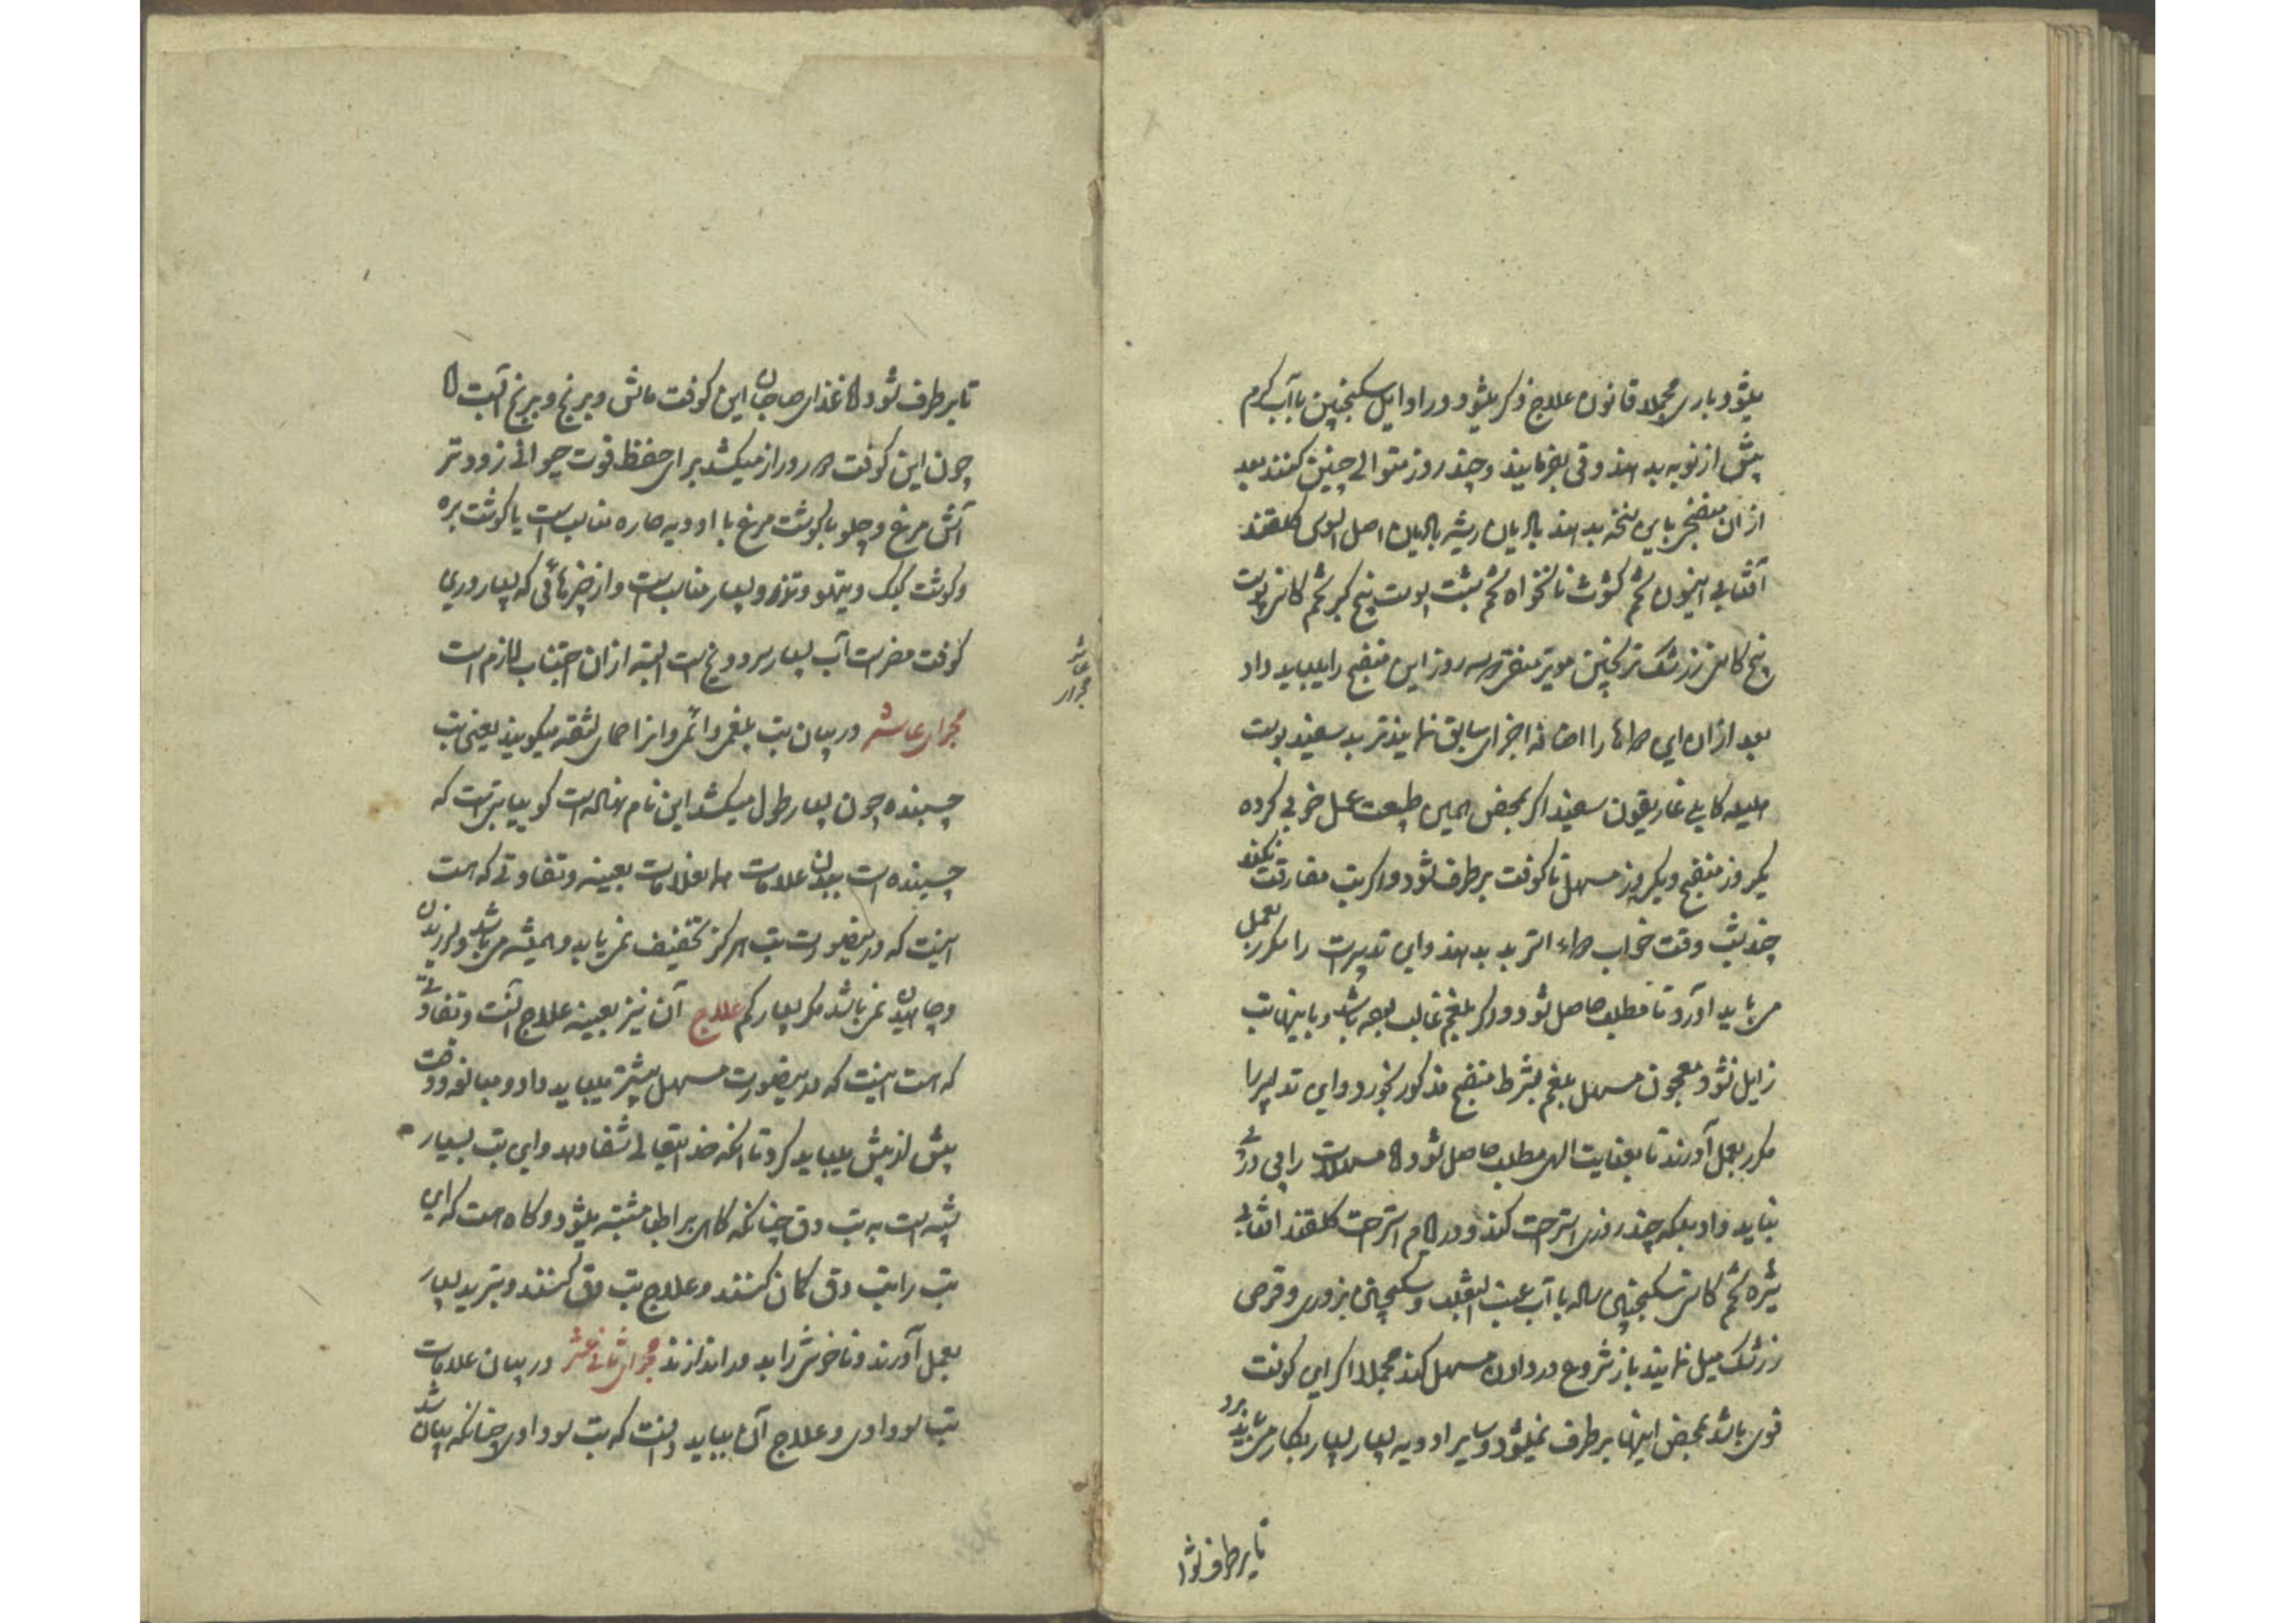 میشود باری مجملا قانون علاج ذکر میشود در اوایل سکنجبین با آب گرم
پیش از نوبه بدهند و قی بفرمایند و چند روز متوالی چنین کنند بعد
از ان منضج باین نسخه بدهند بادیان ریشه بادیان اصل السوس گلقند
آفتابی انیسون تخم کشوث نانخواه تخم شبت پوست بیخ کبر تخم کاسنی پوست
بیخ کاسنی زرشک ترنجبین مویز منقی سه روز این منضج را میباید داد
بعد از ان این دواها را اضافه اجزای سابق نمایند تربد سفید پوست
هلیله کابلی غاریقون سفید اگر بمحض همین طبیعت عمل خوبی کرده
یکروز منضج و یکروز مسهل تا کوفت برطرف شود و اگر تب مفارقت نکند
چند شب وقت خواب دواء التربد بدهند و این تدبیرات را مکرر بعمل
می باید آورد تا مطلب حاصل شود و اگر بلغم غالب بوده باشد و باینها تب
زایل نشود معجون مسهل بلغم بشرط منضج مذکور بخورد و این تدابیر را
مکرر بعمل آورند تا بعنایت الهی مطلب حاصل شود اما مسهلات را پی در پی
نباید داد بلکه چند روزی استراحت کند و در ایام استراحت گلقند افتابی
شیره تخم کاسنی سکنجبین ساده با آب عنب الثعلب و سکنجبین بزوری و قرص
زرشک میل نمایند باز شروع در دادن مسهل کند مجملا اگر این کوفت
قوی باشد بمحض اینها برطرف نمیشود و سایر ادویه بسیار بسیار بکار می باید برد
تا برطرف شود
تا برطرف شود اما غذای صاحبان این کوفت ماش و برنج و برنج آبست اما
چون این کوفت دور و دراز میکشد برای حفظ قوت حیوانی زودتر
آش مرغ و چلو با گوشت مرغ با ادویه حاره مناسبست یا گوشت بره
و گوشت کبک و تیهو و تذرو بسیار مناسبست و از چیزهائی که بسیار درین
کوفت مضرست آب بسیار سرد و یخ ست البته از ان اجتناب لازم است
عاشر
مجرای
مجرای عاشر در بیان تب بلغمی دائمی و انرا حمای لثقه میگویند یعنی تب
چسبنده چون بسیار طول میکشد این نام نهاده‌است گوییا تبیست که
چسبنده است ببدن علامات همان علامات بعینه و تفاوتی که هست
اینست که در اینصورت تب هرگز تخفیف نمی یابد و همیشه می باشد و لرزیدن
و چاهیدن نمی باشد مگر بسیار کم علاج آن نیز بعینه علاج آنست و تفاوتی
که هست اینست که در اینصورت مسهل بیشتر میباید داد و مبالغه و دقت
بیش از پیش میباید کرد تا انکه خدایتعالی شفا دهد و این تب بسیار
شبیه است به تب دق چنانکه گاهی بر اطبا مشتبه میشود و گاه هست که این
تب را تب دق گمان کنند و علاج تب دق کنند و تبرید بسیار
بعمل آورند و ناخوش را بد در اندازند مجرای ثانی عشر در بیان علامات
تب سوداوی و علاج آن بباید دانست که تب سوداوی چنانکه بیان شد